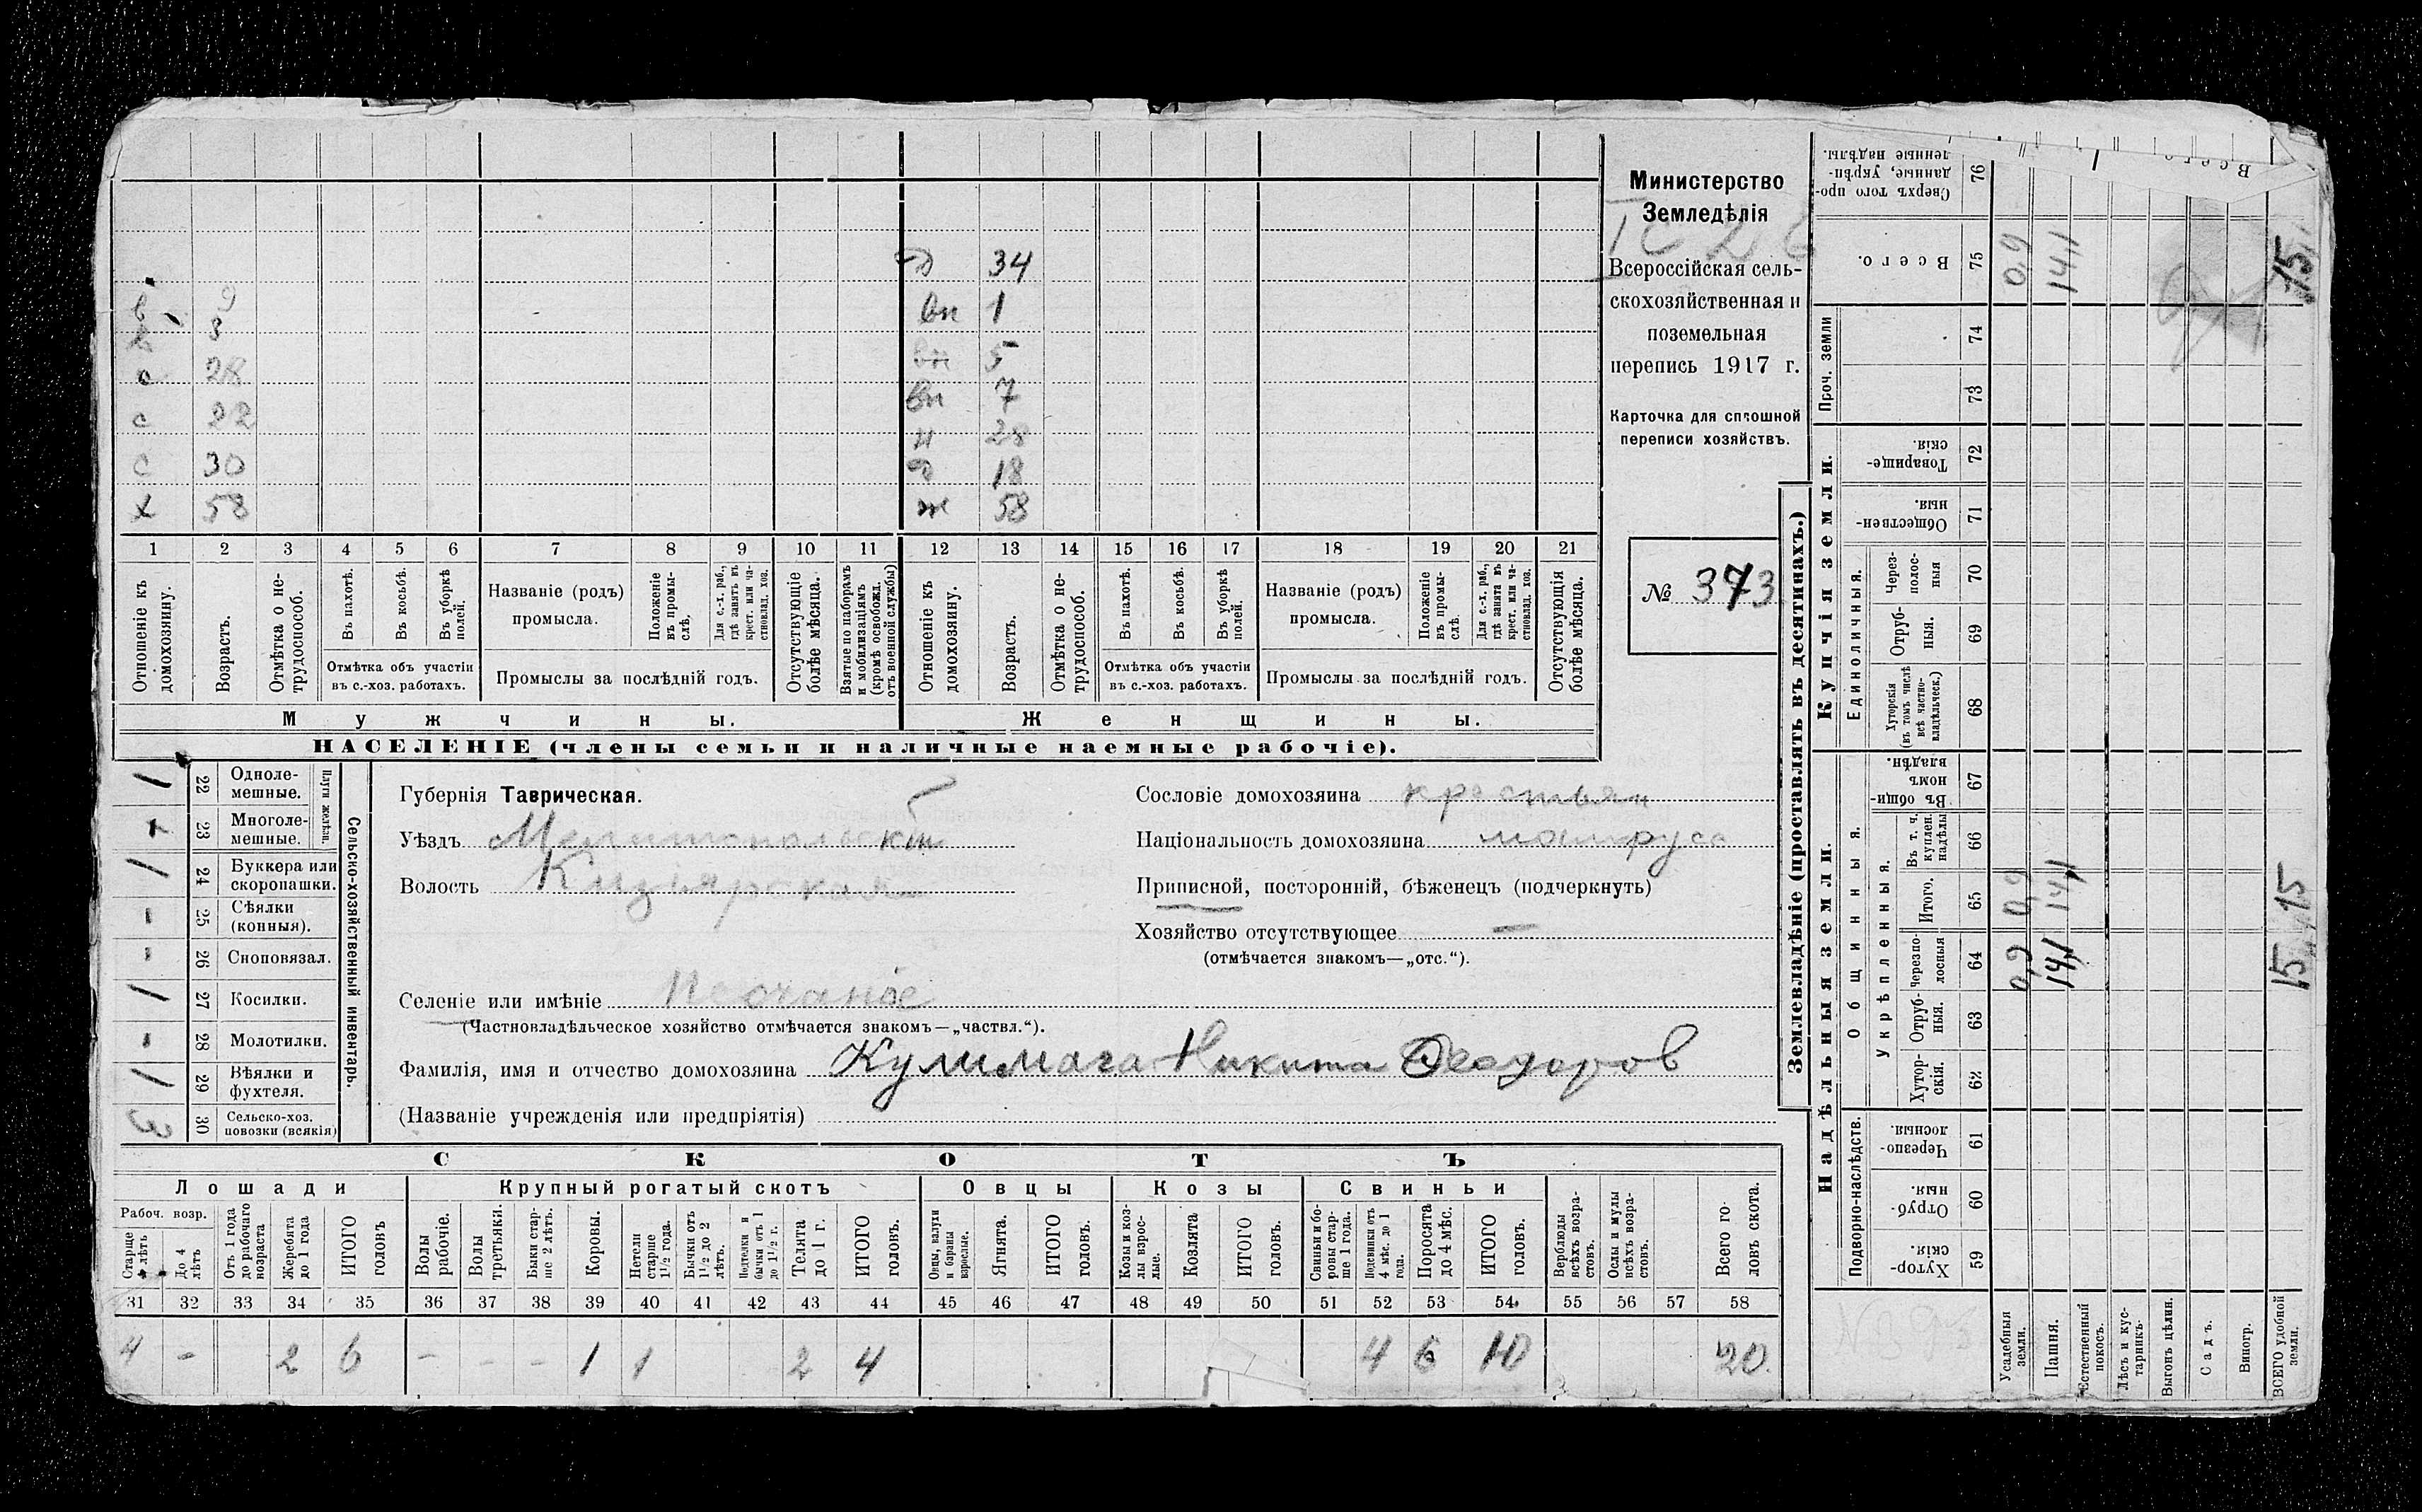 Министерство
Земледѣлія
Всероссійская сель-
скохозяйственная и
поземельная
перепись 1917 г.
Карточка для сплошной
переписи хозяйствъ.
№ 373
34
в 9 вн 1
в 8 вн 5
с 28 вн 7
с 22 н 28
с 30 д 18
х 58 ж 58
1 2 3 4 5 6 7 8 9 10 11 12 13 14 15 16 17 18 19 20 21
Отношеніе къ домохозяину.
Возрастъ.
Отмѣтка о не-трудоспособ.
Въ пахотѣ.
Въ косьбѣ.
Въ уборкѣ полей.
Отмѣтка объ участіи
въ с.-хоз. работахъ.
Названіе (родъ)
промысла.
Положеніе въ промы-слѣ.
Для с.-х. раб., гдѣ занятъ въ крест. или ча-стновлад. хоз.
Промыслы за послѣдній годъ.
Отсутствующіе болѣе мѣсяца.
Взятые по наборамъ и мобилизаціямъ (кромѣ освобожд. отъ военной службы)
Отношеніе къ домохозяину.
Возрастъ.
Отмѣтка о не-трудоспособ.
Въ пахотѣ.
Въ косьбѣ.
Въ уборкѣ полей.
Отмѣтка объ участіи
въ с.-хоз. работахъ.
Названіе (родъ)
промысла.
Положеніе въ промы-слѣ.
Для с.-х. раб., гдѣ занята въ крест. или ча-стновлад. хоз.
Промыслы за послѣдній годъ.
Отсутствующія болѣе мѣсяца.
Мужчины. Женщины.
НАСЕЛЕНІЕ (члены семьи и наличные наемные рабочіе).
Сельско-хозяйственный инвентарь.
Плуги желѣзн.
1 22 Одноле-мешные.
23 Многоле-мешные.
1 24 Буккера или скоропашки.
- 25 Сѣялки (конныя).
- 26 Сноповязал.
1 27 Косилки.
- 28 Молотилки.
1 29 Вѣялки и фухтеля.
3 30 Сельско-хоз. повозки (всякія)
Губернія Таврическая.
Уѣздъ Мелитопольскій
Волость Кизіярская
Селеніе или имѣніе Песчаное
(Частновладѣльческое хозяйство отмѣчается знакомъ—„частвл.“).
Фамилія, имя и отчество домохозяина Кулимага Никита Феодоров
(Названіе учрежденія или предпріятія)
Сословіе домохозяина крестьян
Національность домохозяина малорусс
Приписной, посторонній, бѣженецъ (подчеркнуть)
Хозяйство отсутствующее —
(отмѣчается знакомъ—„отс.“).
СКОТЪ
Лошади Крупный рогатый скотъ Овцы Козы Свиньи
Рабоч. возр.
Старше 4 лѣтъ
До 4 лѣтъ
Отъ 1 года до рабочаго возраста
Жеребята до 1 года
ИТОГО головъ
Волы рабочіе.
Волы третьяки.
Быки стар-ше 2 лѣтъ.
Коровы.
Нетели старше 1½ года.
Бычки отъ 1½ до 2 лѣтъ.
Подтелки и бычки отъ 1 до 1½ г.
Телята до 1 г.
ИТОГО головъ.
Овцы, валухи и бараны взрослые.
Ягнята.
ИТОГО головъ.
Козы и коз-лы взрос-лые.
Козлята
ИТОГО головъ.
Свиньи и бо-ровы стар-ше 1 года.
Подсвинки отъ 4 мѣс. до 1 года.
Поросята до 4 мѣс.
ИТОГО головъ.
Верблюды всѣхъ возра-стовъ.
Ослы и мулы всѣхъ возра-стовъ.
Всего го-ловъ скота.
31 32 33 34 35 36 37 38 39 40 41 42 43 44 45 46 47 48 49 50 51 52 53 54 55 56 57 58
4 - 2 6 - - - 1 1 2 4 4 6 10 20
Землевладѣніе (проставлять въ десятинахъ.)
Надѣльныя земли. Купчія земли. Проч. земли
Подворно-наслѣдств.
Общинныя.
Укрѣпленныя.
Единоличныя.
Хутор-скія. 59
Отруб-ныя. 60
Черезпо-лосныя. 61
Хутор-скія. 62
Отруб-ныя. 63
Черезпо-лосныя 64
Итого. 65
Въ т. ч. куплен. надѣлы 66
Въ общин-номъ владѣн. 67
Хуторскія (въ томъ числѣ всѣ частно-владѣльческ.) 68
Отруб-ныя. 69
Через-полос-ныя 70
Обществен-ныя 71
Товарище-скія. 72
73
74
Всего. 75
Сверхъ того про-данные, укрѣп-ленные надѣлы. 76
Усадебныя земли. 0,9 0,9 0,9
Пашня. 14,1 14,1 14,1
Естественный покосъ.
Лѣсъ и кус-тарникъ.
Выгонъ цѣлин.
Садъ.
Виногр.
ВСЕГО удобной земли. 15 15 15
Всего